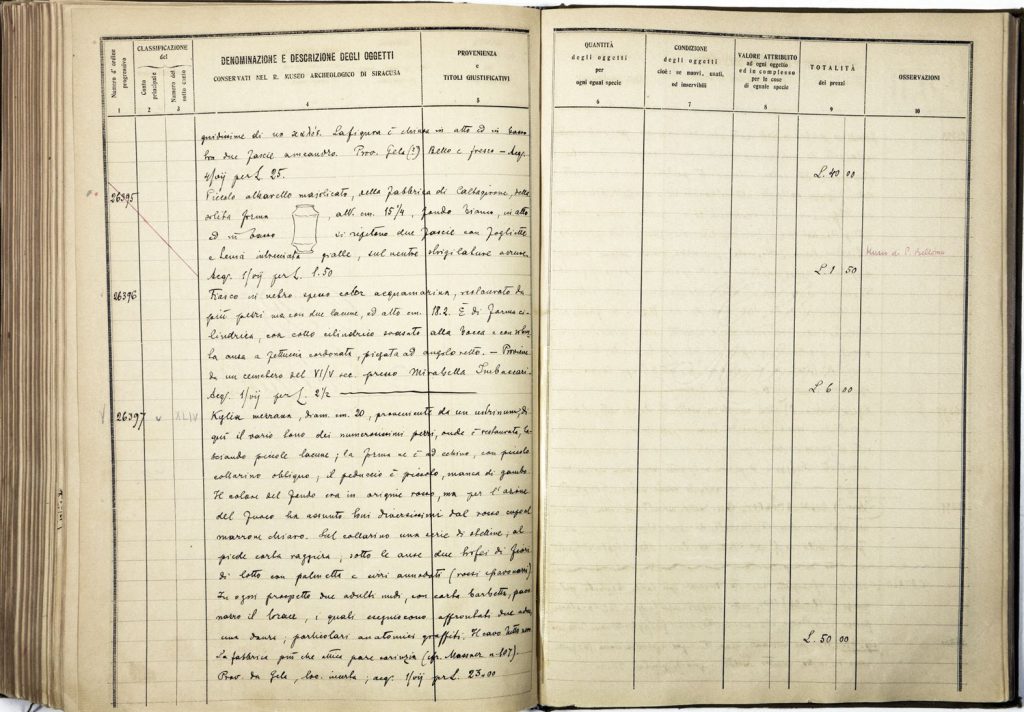 Numero d' ordine progressivo
CLASSIFICAZIONE del
Conto principale
Numero del sotto conto
DENOMINAZIONE E DESCRIZIONE DEGLI OGGETTI
CONSERVATI NEL R. MUSEO ARCHEOLOGICO DI SIRACUSA
PROVENIENZA
e
TITOLI GIUSTIFICATIVI
1 2 3 4 5
QUANTITÀ
degli oggetti
per
ogni egual specie
CONDIZIONE
degli oggetti
cioè: se nuovi, usati,
od inservibili
VALORE ATTRIBUITO
ad ogni oggetto
ed in complesso
per le cose
di eguale specie
TOTALITÀ
dei prezzi
OSSERVAZIONI
6 7 8 9 10
di un καλός. La figura è chiara in alto ed in basso
tra due fascie a meandro. Prov. Gela (?) Bello e fresco – Acq.
per L. 25.
L. 40 00
26395
Piccolo albarello majolicato, della fabbrica di Caltagirone, della
solita forma , alt. cm. 15 1/4, fondo bianco, in alto
ed in basso si ripetono due fascie con foglietti
e gialle, sul ventre
Acq. per L. 1.50
L. 1 50
26396
Fiasco di vetro spesso color acquamarina, restaurato da
più pezzi ma con due lacune, ed alto cm. 18.2. È di forma ci-
lindrica, con collo cilindrico svasato alla bocca e con
ansa a fettuccia cordonata, piegata ad angolo retto. – Proviene
da un cemetero del VI/V sec. presso Mirabella Imbaccari –
Acq. per L. 2 1/2
L. 6 00
26397 XLIV
Kylix diam. cm. 20, proveniente da un
quì il vario tono dei numerosissimi pezzi, onde è restaurata, la-
sciando piccole lacune; la forma ne è ad echino, con piccolo
collarino obliquo; il peduccio è piccolo, manca di gambo.
Il colore del fondo era in origine rosso, ma per l'azione
del fuoco ha assunto toni diversissimi dal rosso cupo al
marrone chiaro. Sul collarino una serie di al
piede corta raggiera, sotto le anse due di fiore
di loto con palmetta e cirri annodati (rossi
In ogni prospetto due adulti nudi, con corta barbetta,
il torace, i quali eseguiscono affrontati due a due
una danza; particolari anatomici graffiti. Il cavo tutto nero
La fabbrica più che attica pare corinzia (cfr. n. 107).
Prov. da Gela, acq. per L. 23.00
L. 50 00